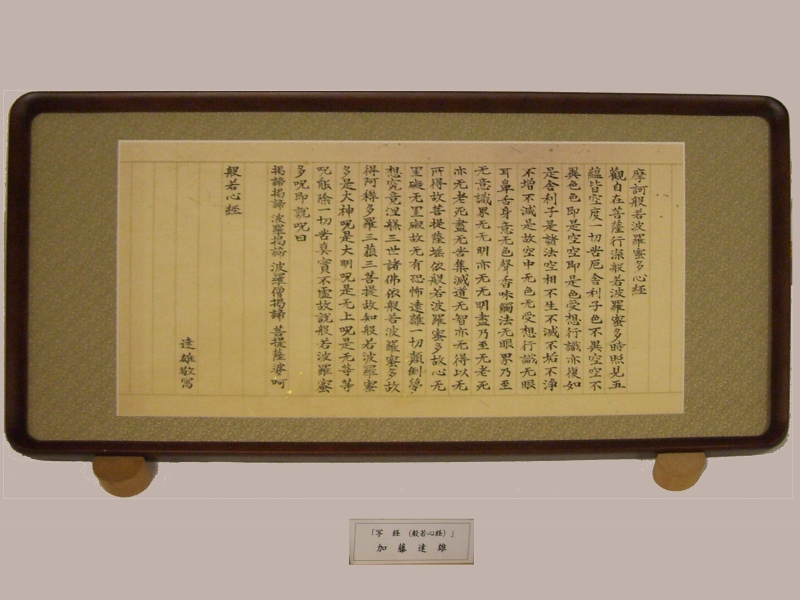 摩訶般若波羅蜜多心経
觀自在菩薩行深般若波羅蜜多時照見五
蘊皆空度一切苦厄舍利子色不異空空不
異色色即是空空即是色受想行識亦復如
是舍利子是諸法空相不生不滅不垢不淨
不增不減是故空中无色无受想行識无眼
耳鼻舌身意无色聲香味觸法无眼界乃至
无意識界无无明亦无无明盡乃至无老死
亦无老死盡无苦集滅道无智亦无得以无
所得故菩提薩埵依般若波羅蜜多故心无
罣礙无罣礙故无有恐怖遠離一切顛倒夢
想究竟涅槃三世諸佛依般若波羅蜜多故
得阿耨多羅三藐三菩提故知般若波羅蜜
多是大神呪是大明呪是无上呪是无等等
呪能除一切苦真實不虛故說般若波羅蜜
多呪即說呪曰
揭諦揭諦 波羅揭諦 波羅僧揭諦 菩提薩婆呵
般若心経
達雄敬寫
「写 経 （般若心経）」
加 藤 達 雄